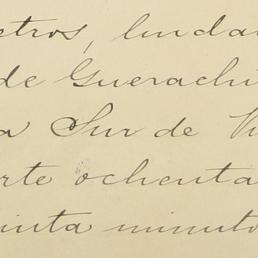 etros, linda
de Guerachi
a Sur de
rte ochenta
inta minuto